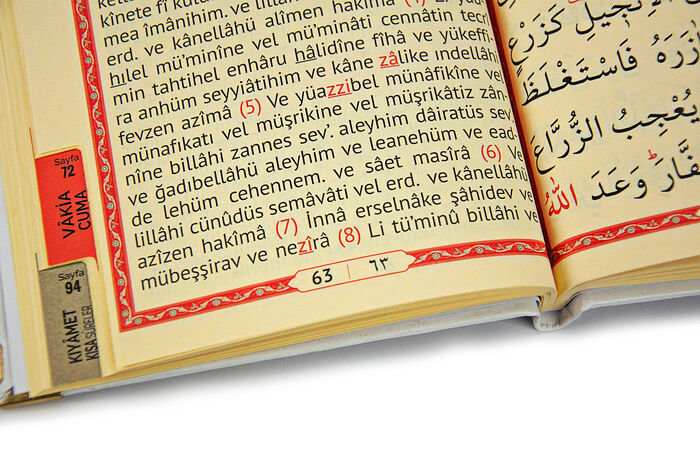 mea îmânihim. ve lillâhi
erd. ve kânellâhü alîmen hakîmâ (4)
hılel mü'minîne vel mü'minâti cennâtin tecrî
min tahtihel enhâru hâlidîne fîhâ ve yükeffi-
ra anhüm seyyiâtihim ve kâne zâlike ındellâhi
fevzen azîmâ (5) Ve yüazzibel münâfikîne vel
münafıkatı vel müşrikîne vel müşrikâtiz zân-
nîne billâhi zannes sev'. aleyhim dâiratüs sev'
ve ğadıbellâhü aleyhim ve leanehüm ve ead-
de lehüm cehennem. ve sâet masîrâ (6) Ve
lillâhi cünûdüs semâvâti vel erd. ve kânellâhü
azîzen hakîmâ (7) İnnâ erselnâke şâhidev ve
mübeşşirav ve nezîrâ (8) Li tü'minû billâhi ve
63 | ٦٣
Sayfa
72
VÂKİA
CUMA
Sayfa
94
KIYÂMET
KISA SÛRELER
الْاِنْجٖيلِ كَزَرْعٍ
فَاسْتَغْلَظَ
يُعْجِبُ الزُّرَّاعَ
وَعَدَ اللّٰهُ